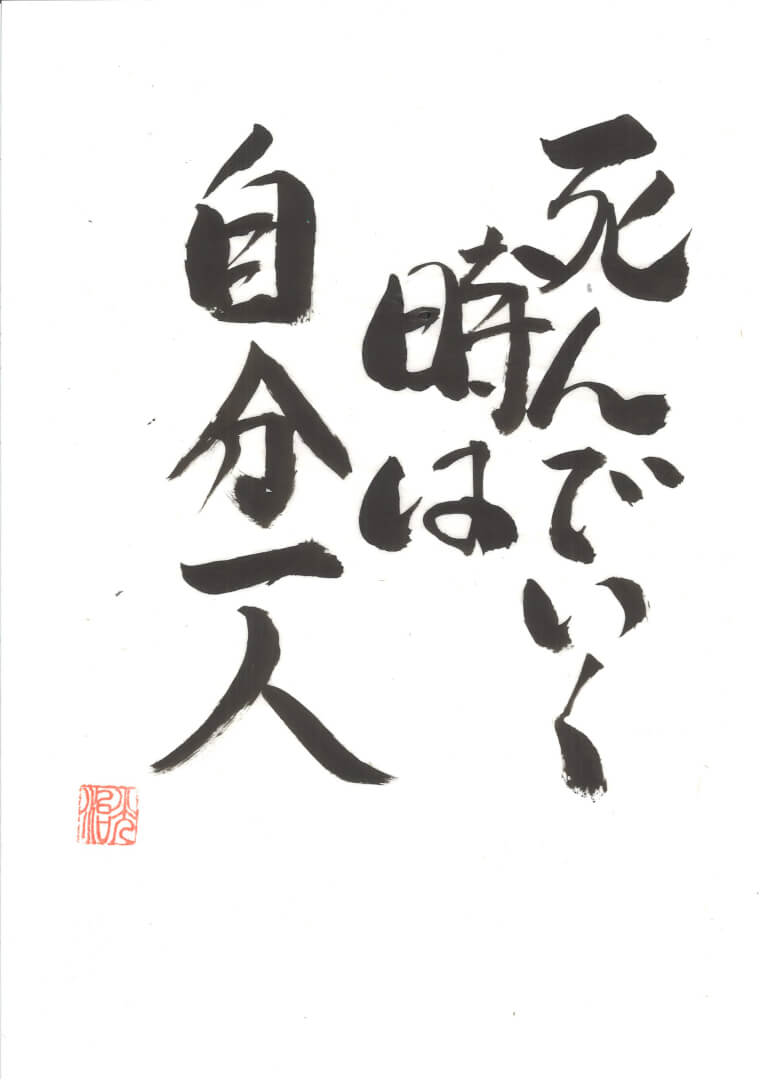 死んでいく
時は
自分一人